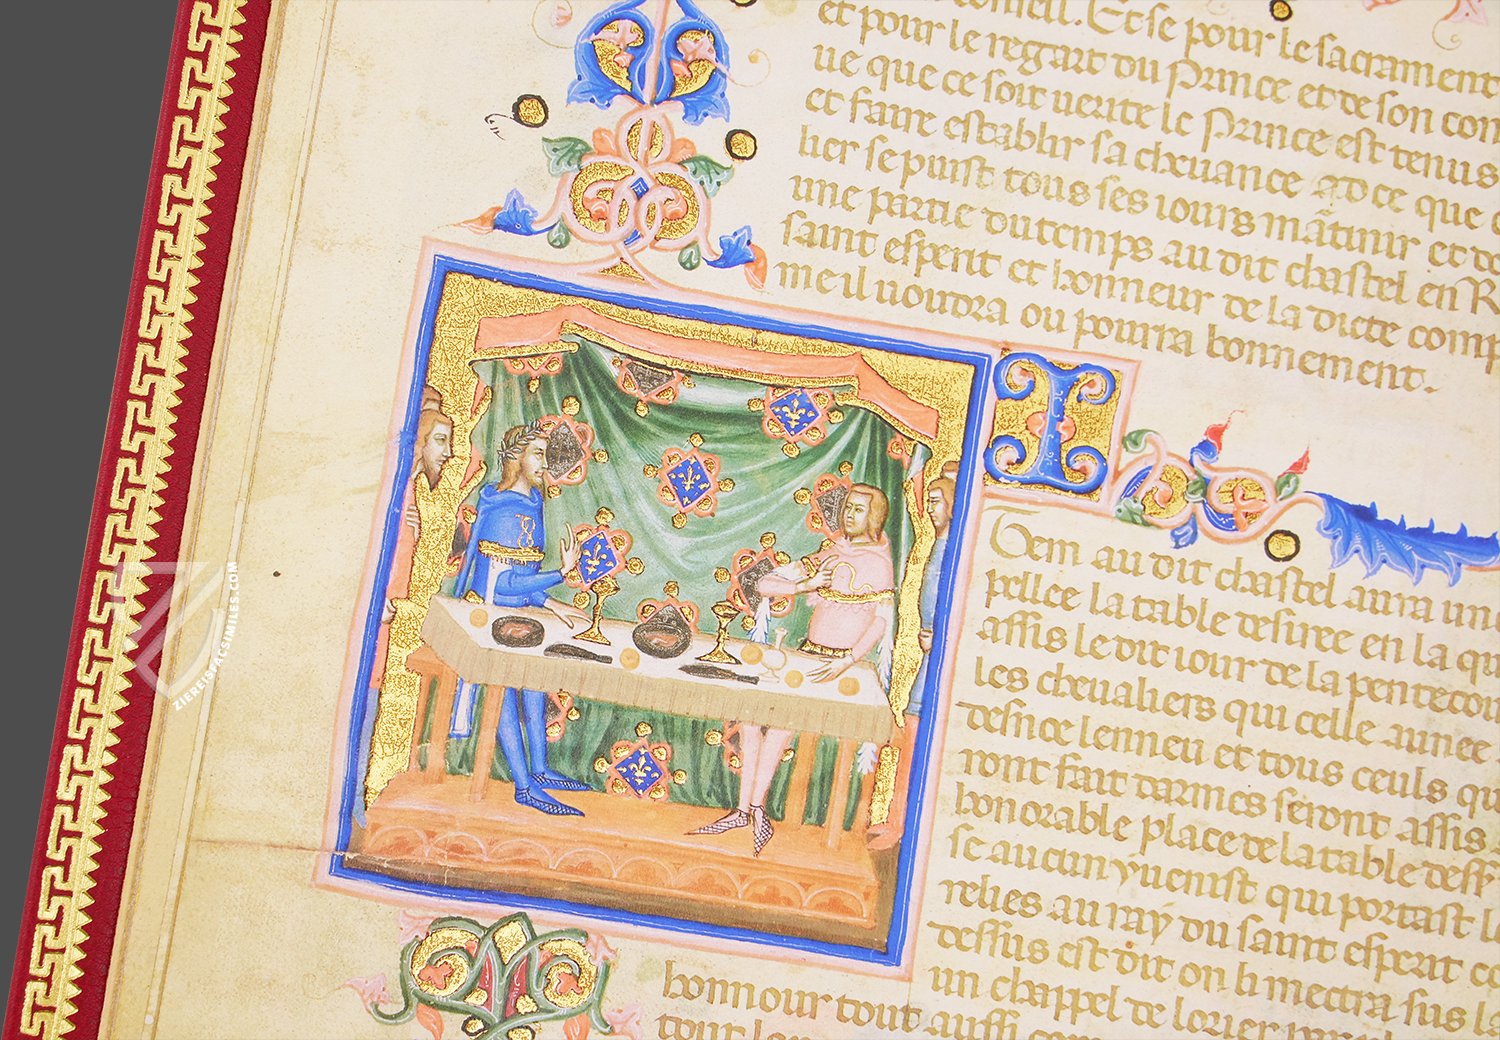 conseil. Et se pour le sacrament
et pour le regart du Prince et de son con
ue que ce soit uerite le Prince est tenus
et faire establir sa cheuance ad ce que
lier se puist tous ses iours mãtinir et de
une partie du temps au dit chastel en R
saint esperit et honneur de la dicte comp
me il uoudra ou pourra bonnement.
Item au dit chastel aura une
pellee la table desiree en la qu
assis le dit iour de la pentecou
les cheualiers qui celle annee
desnce lenneu et tous ceuls qu
ront fait darmes seront assis
honorable place de la table dess
se aucun y uenist qui portast le
relies au ray du saint esperit co
dessus est dit on li mectra sus la
un chappel de lorier
bonnour tout aussi com
ZIEREISFACSIMILES.COM